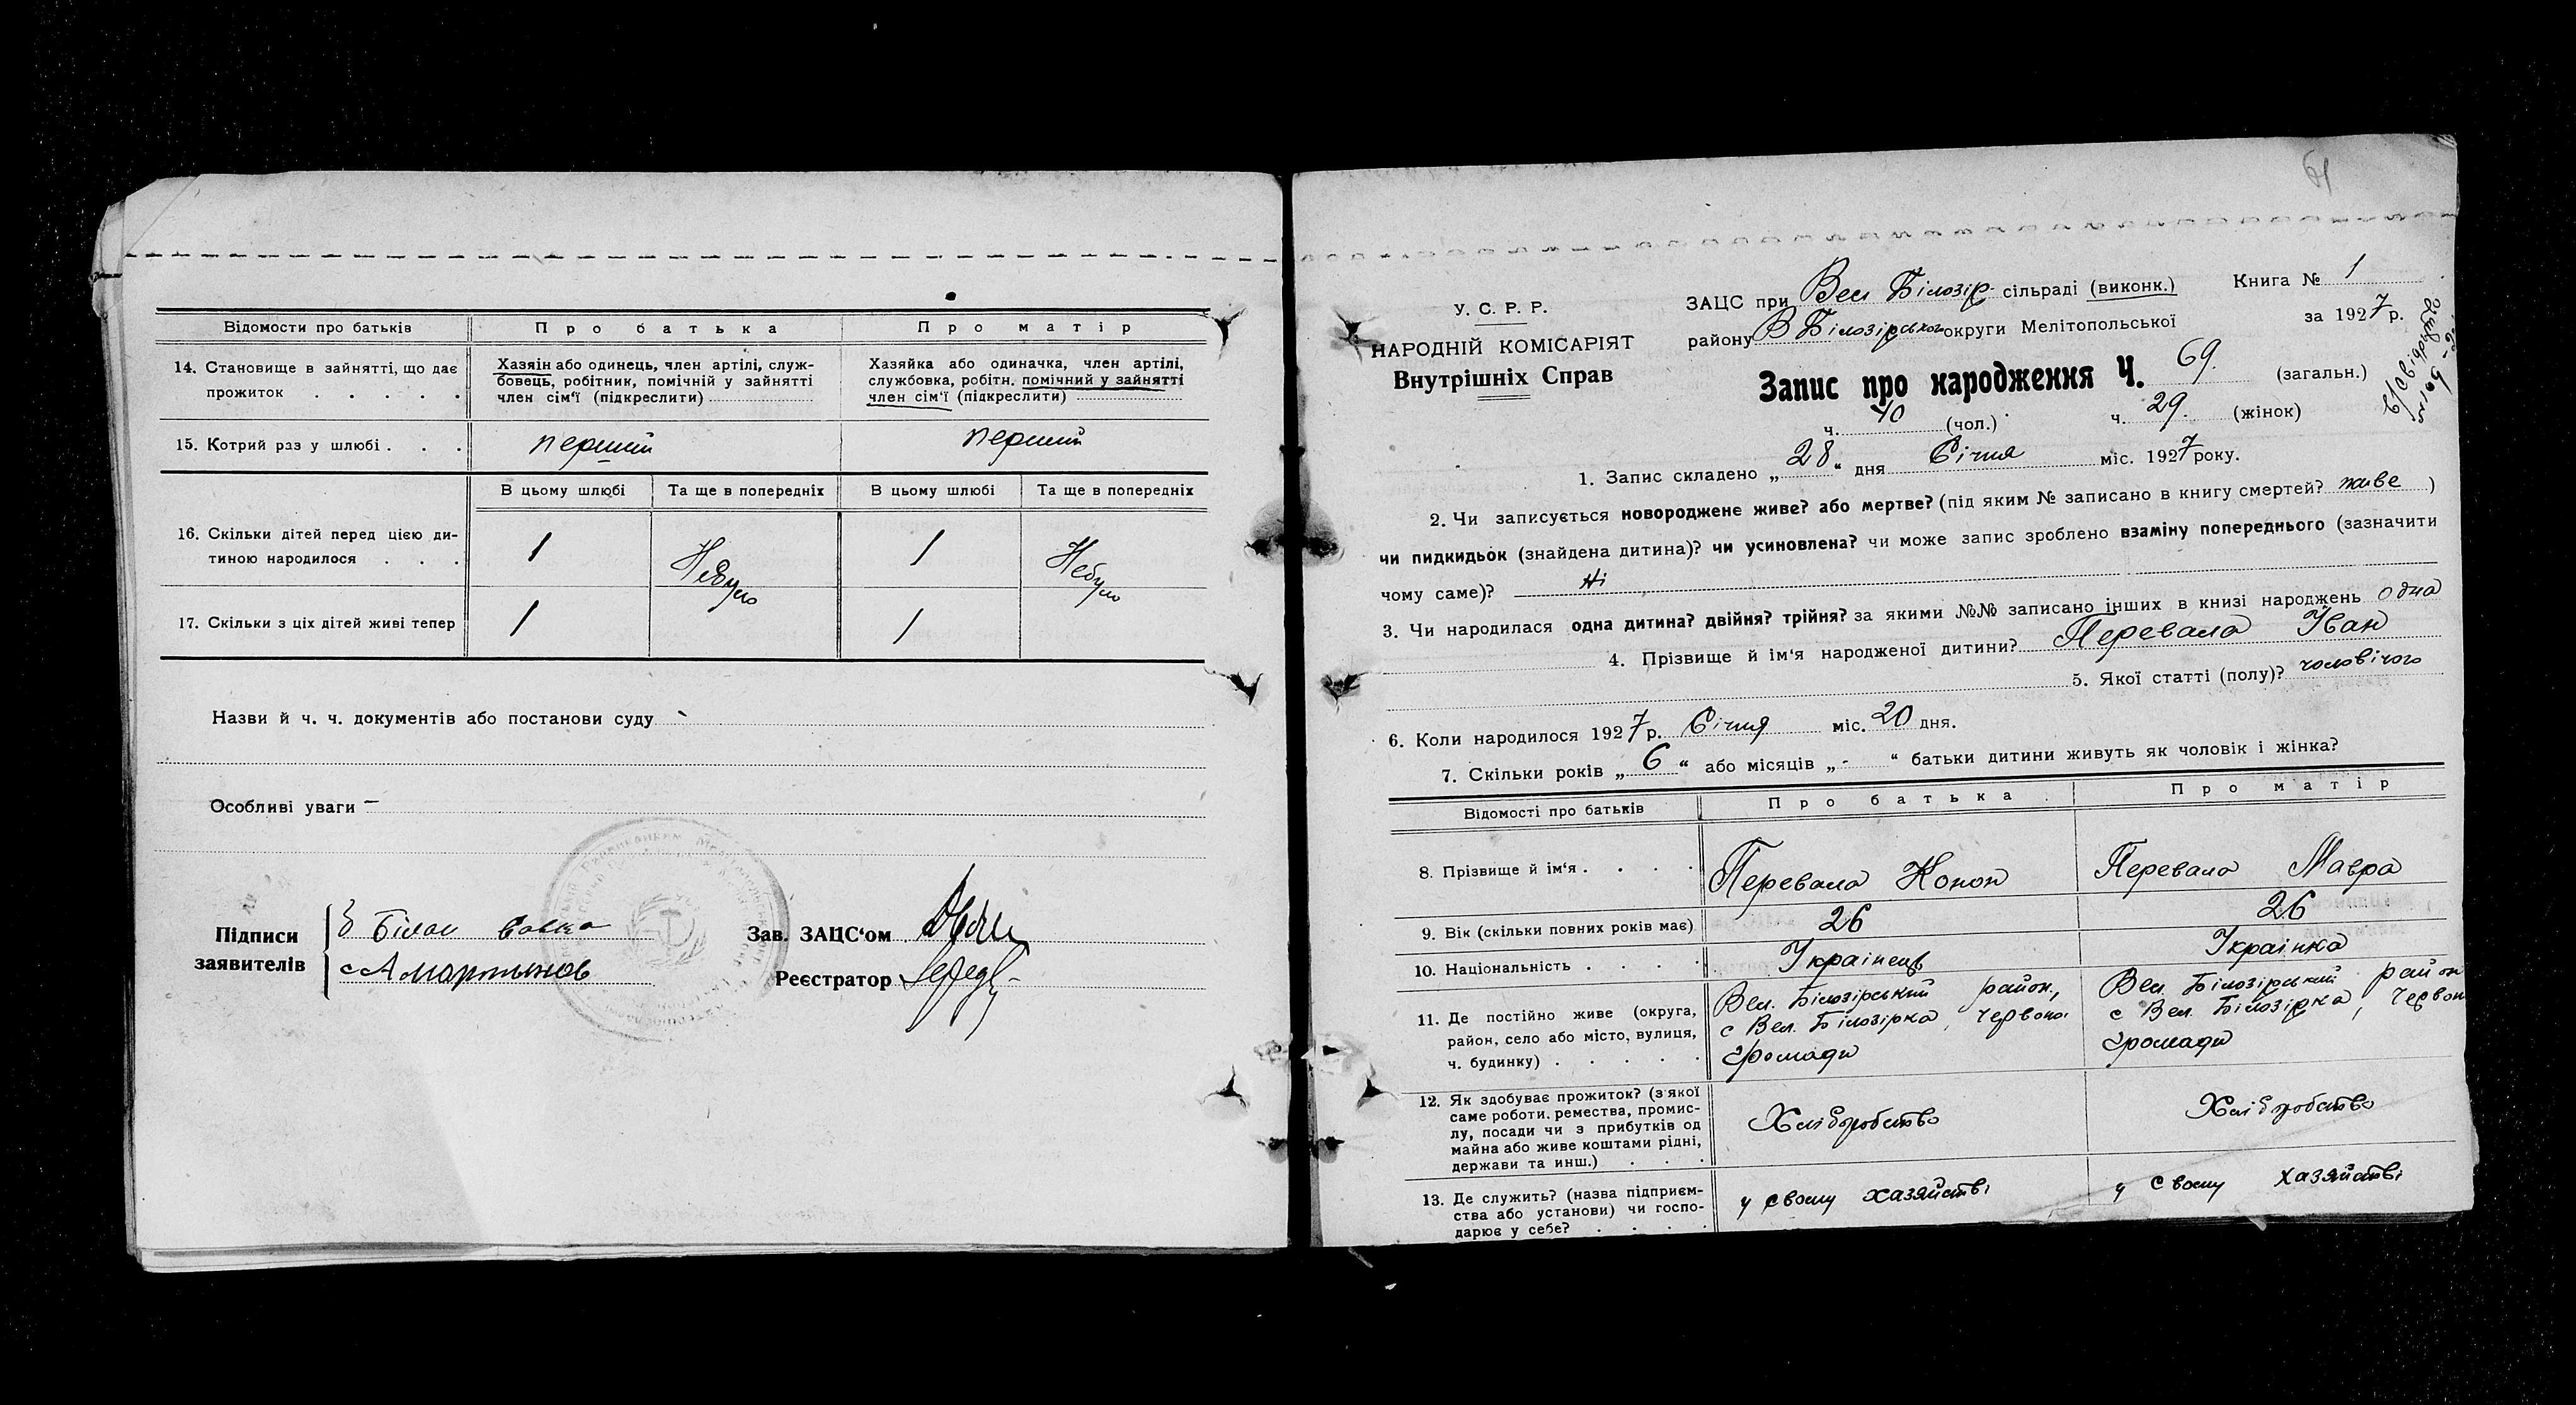 Відомости про батьків
Про батька
Про матір
14. Становище в зайнятті, що дає
прожиток . . . . .
Хазяін або одинець, член артілі, служ-
бовець, робітник, помічній у зайнятті
член сім'ї (підкреслити)
Хазяйка або одиначка, член артілі,
службовка, робітн. помічний у зайнятті
член сім'ї (підкреслити)
15. Котрий раз у шлюбі . . .
перший
перший
В цьому шлюбі
Та ще в попередніх
В цьому шлюбі
Та ще в попередніх
16. Скільки дітей перед цією ди-
тиною народилося . . .
1
Небуло
1
Небуло
17. Скільки з ціх дітей живі тепер
1
1
Назви й ч. ч. документів або постанови суду
Особливі уваги —
Підписи
заявителів
Білан
Мартынов
Зав. ЗАЦС'ом
Реєстратор
61
У. С. Р. Р.
НАРОДНІЙ КОМІСАРІЯТ
Внутрішніх Справ
ЗАЦС при Вел Білозір. сільраді (виконк.)
Книга № 1
району В Білозірського округи Мелітопольської
за 1927 р.
Запис про народження Ч. 69. (загальн.)
ч. 40 (чол.) ч. 29. (жінок)
1. Запис складено „28“ дня Січня міс. 1927 року.
2. Чи записується новороджене живе? або мертве? (під яким № записано в книгу смертей? живе )
чи пидкидьок (знайдена дитина)? чи усиновлена? чи може запис зроблено взаміну попереднього (зазначити
чому саме)? Ні
3. Чи народилася одна дитина? двійня? трійня? за якими №№ записано інших в книзі народжень одна
4. Прізвище й ім'я народженої дитини? Перевала Іван
5. Якої статті (полу)? чоловічого
6. Коли народилося 1927 р. Січня міс. 20 дня.
7. Скільки років „6“ або місяців „-“ батьки дитини живуть як чоловік і жінка?
Відомості про батьків
Про батька
Про матір
8. Прізвище й ім'я . . . .
Перевала Конон
Перевала Мавра
9. Вік (скільки повних років має)
26
26
10. Національність . . . .
Українець
Українка
11. Де постійно живе (округа,
район, село або місто, вулиця,
ч. будинку) . . . . .
Вел. Білозірський район,
с Вел. Білозірка, Червоно.
громади
Вел. Білозірський район
с Вел. Білозірка, Червон
громади
12. Як здобуває прожиток? (з якої
саме роботи. ремества, промис-
лу, посади чи з прибутків од
майна або живе коштами рідні,
держави та инш.) . . .
Хліборобство
Хліборобство
13. Де служить? (назва підприєм-
ства або установи) чи госпо-
дарює у себе? . . . .
у своему хазяйстві
у своему хазяйстві